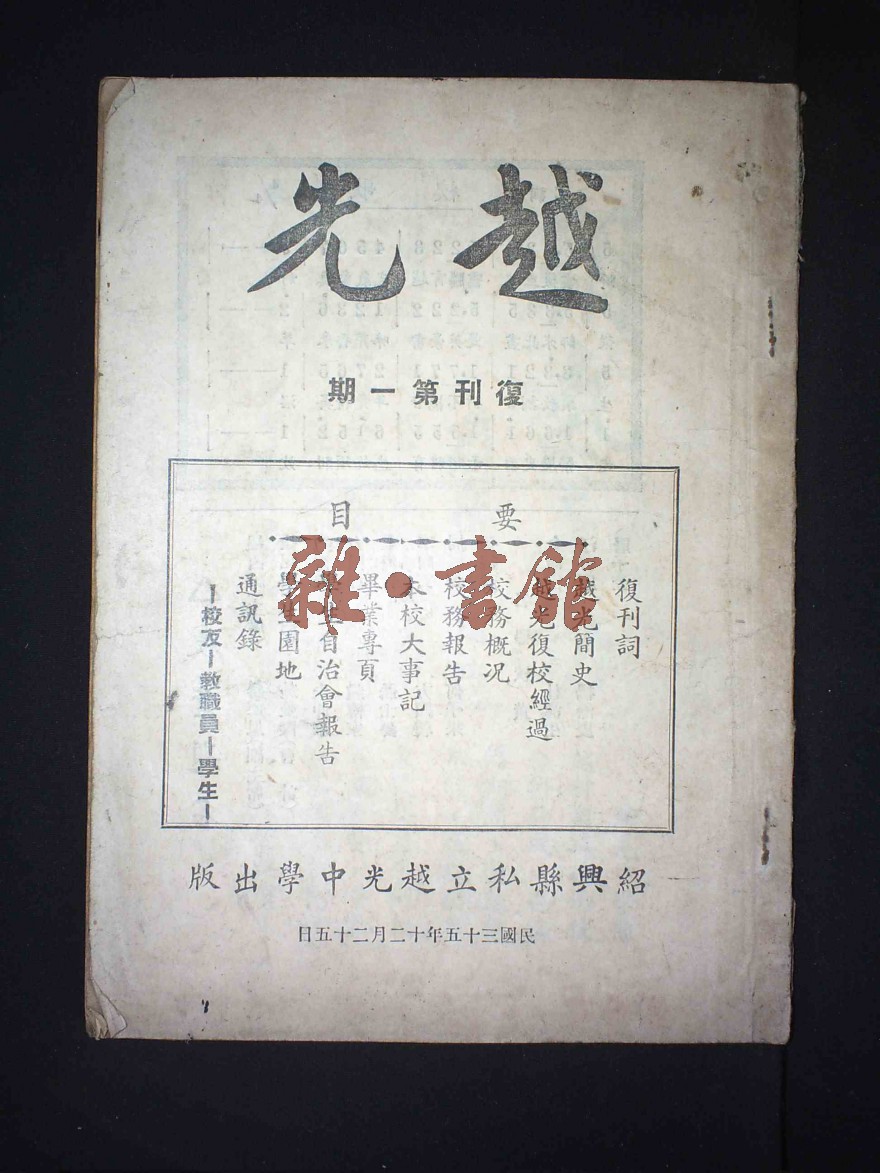 越光
復刊第一期
要目
復刊詞
越光簡史
越光復校經過
校務概況
校務報告
本校大事記
畢業專頁
學生自治會報告
學生園地
通訊錄
—校友—教職員—學生—
紹興縣私立越光中學出版
民國三十五年十二月二十五日
雜·書館